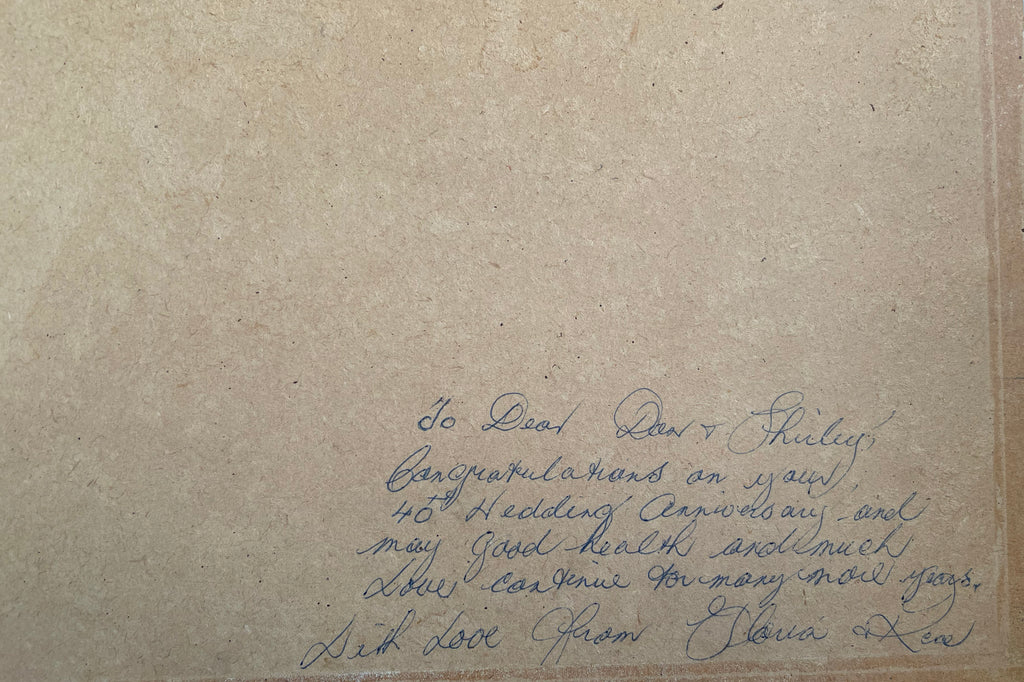 To Dear Don + Shirley,
Congratulations on your
40th Wedding Anniversary and
may good health and much
Love continue for many more years.
With Love From Gloria + Ken